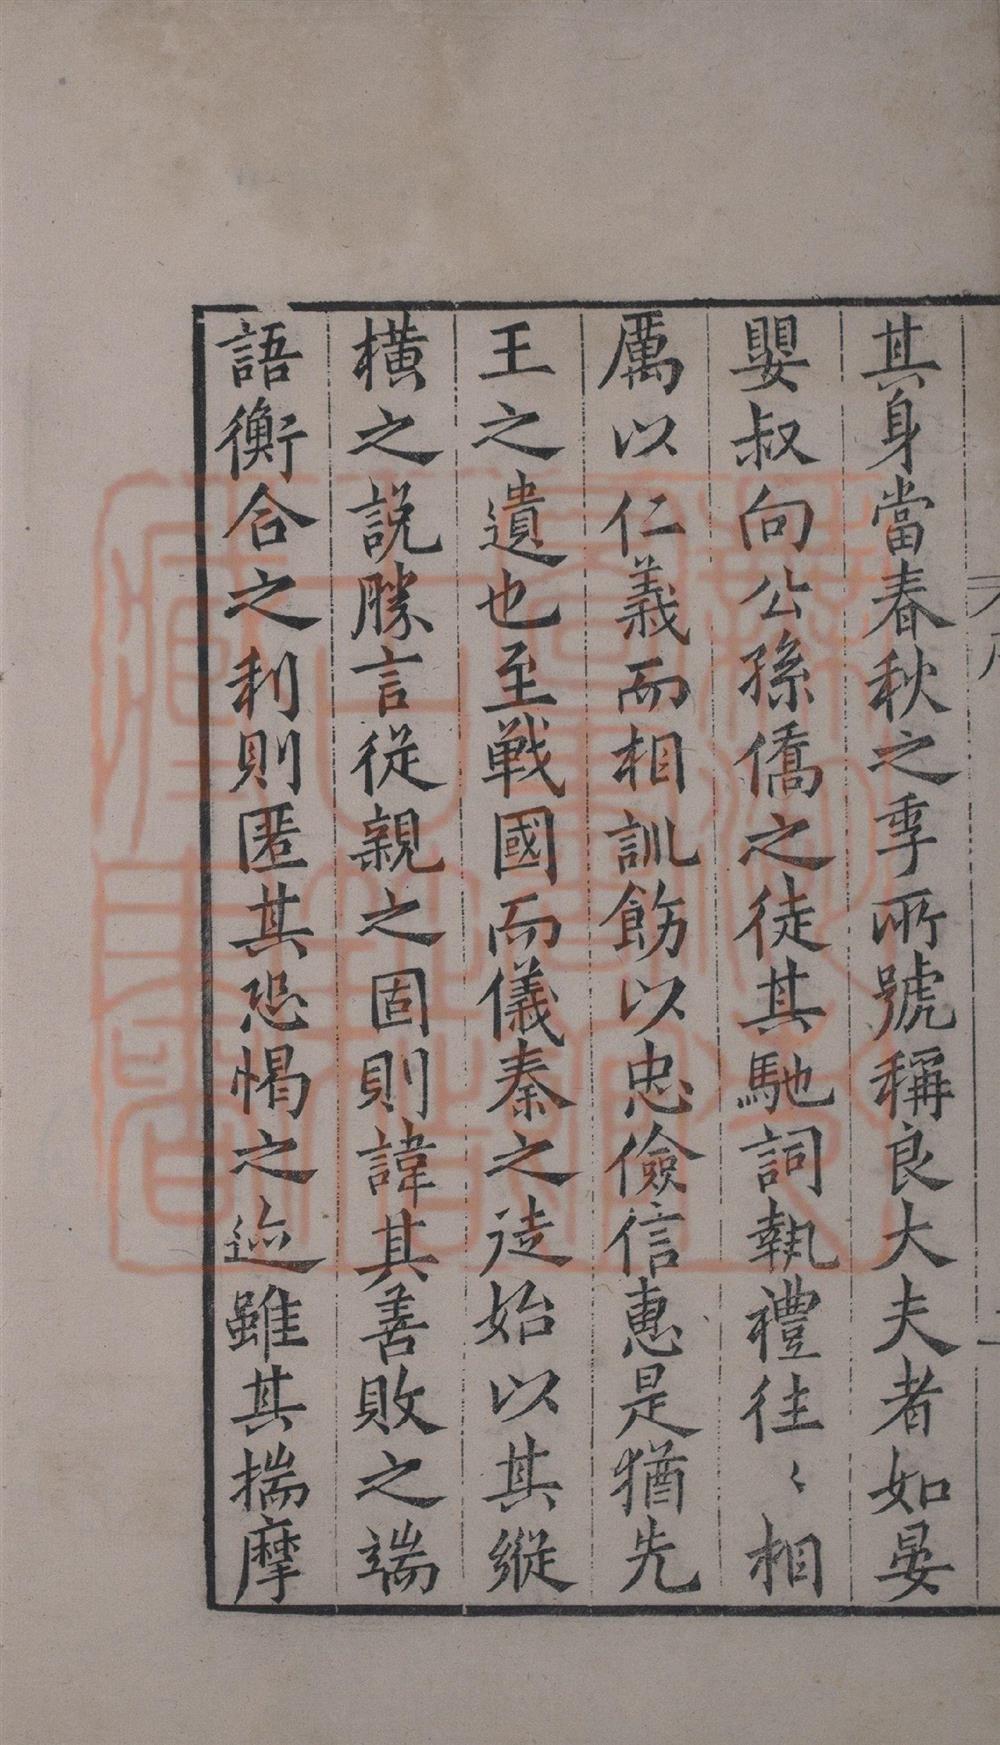 其身當春秋之季所號稱良大夫者如晏
嬰叔向公孫僑之徒其馳詞執禮往〻相
厲以仁義而相訓飭以忠儉信惠是猶先
王之遺也至戰國而儀秦之徒始以其縱
橫之説勝言從親之固則諱其善敗之端
語衡合之利則匿其恐愒之迹雖其揣摩